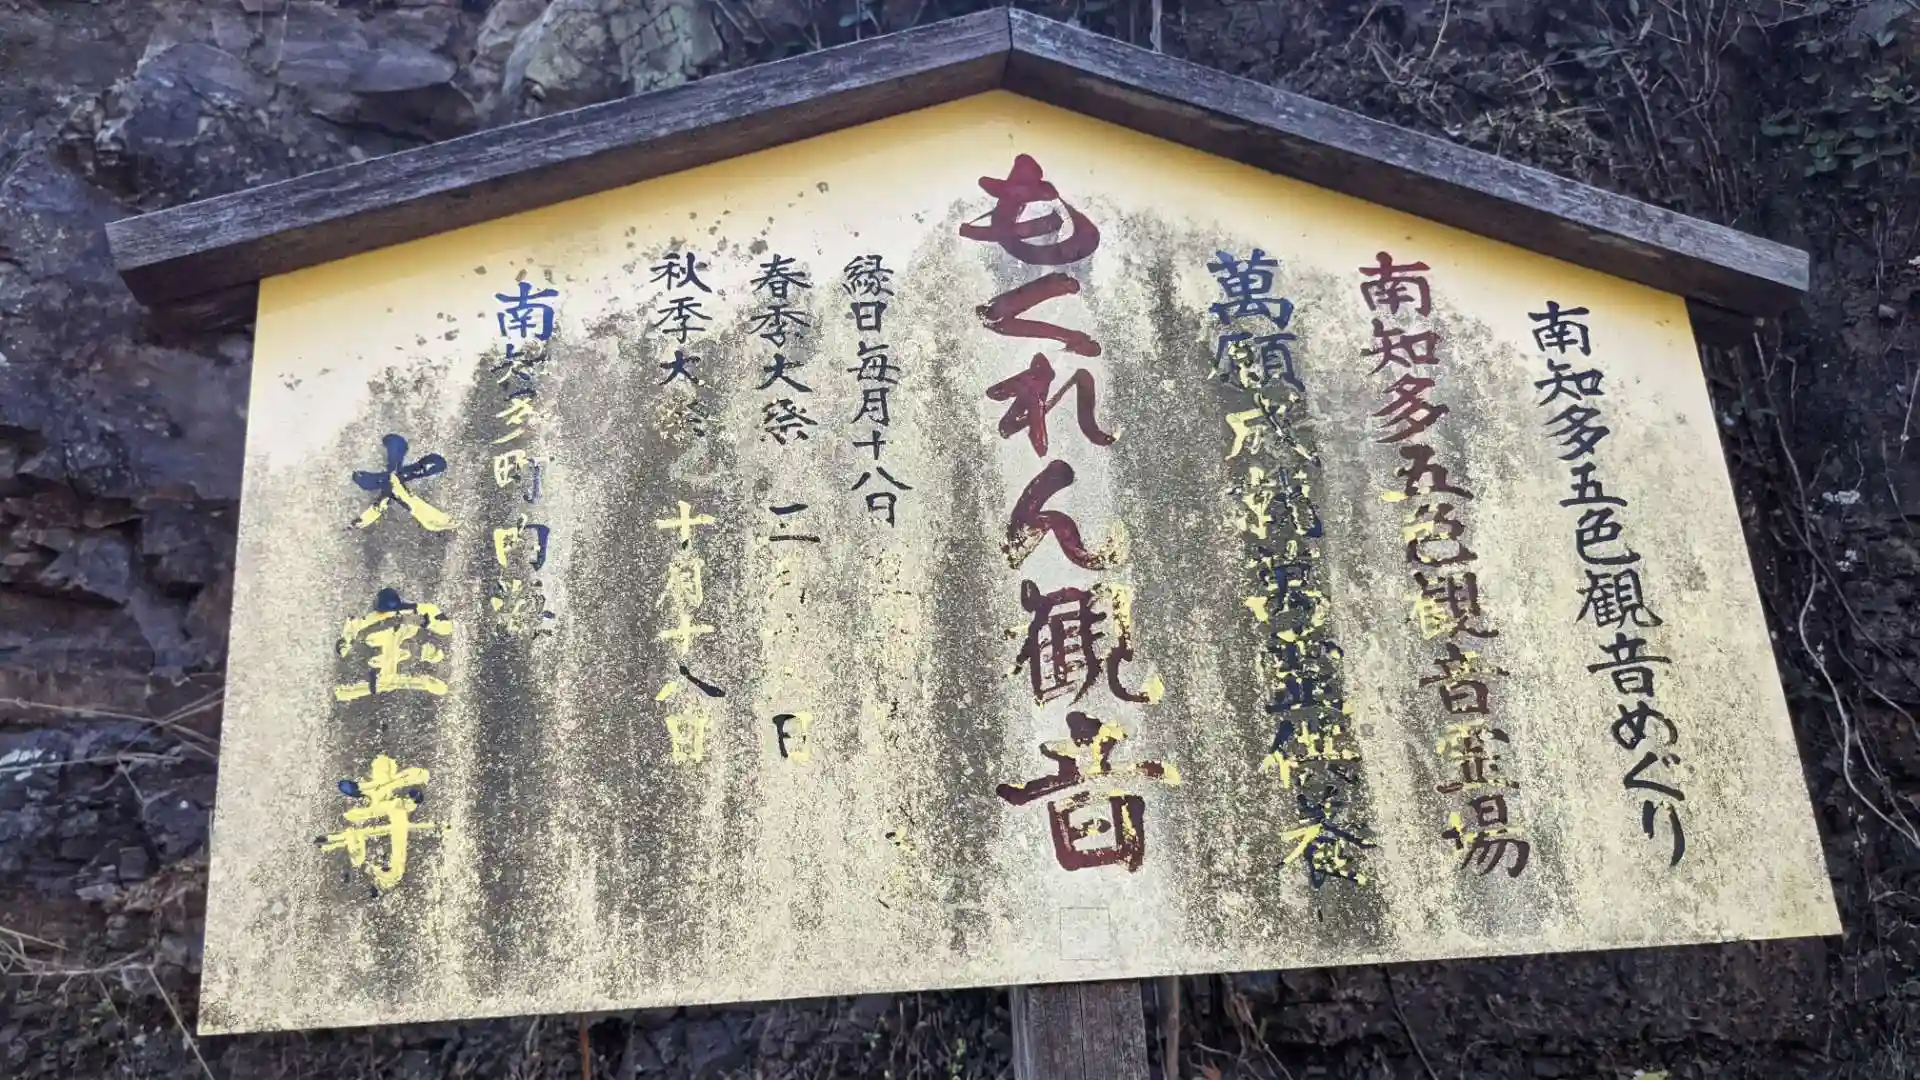 南知多五色観音めぐり
南知多五色観音霊場
萬願成就萬霊供養
もくれん観音
縁日毎月十八日
春季大祭 二月 日
秋季大祭 十月十八日
南知多町内海
大宝寺